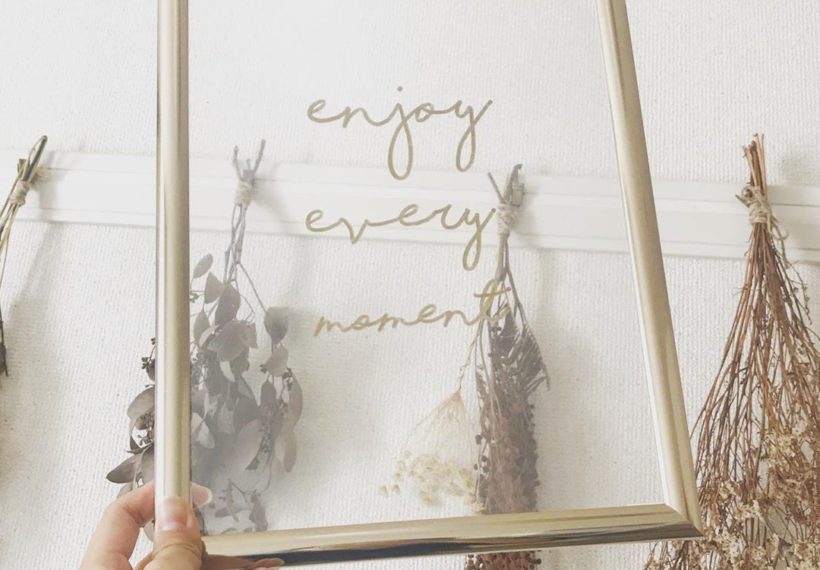 enjoy
every
moment